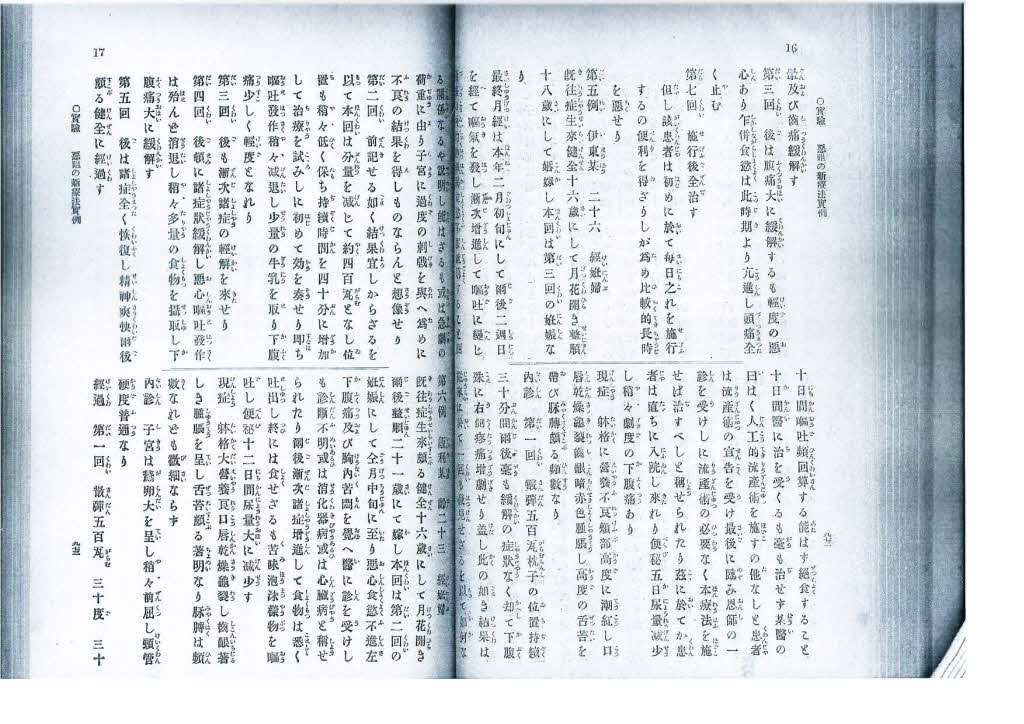 16
○實驗 惡阻の新療法實例
最及び齒痛緩解す
第三回 後は腹痛大に緩解するも輕度の惡
心あり乍併食慾は此時期より亢進し頭痛全
く止む
第七回 施行後全治す
但し該患者は初めに於て毎日之れを施行
するの便利を得ざりしが爲め比較的長時
を惡せり
第五例 伊東某 二十六 經姙婦
既往症生來健全十六歲にして月花開き整順
十八歲にして婚嫁し本回は第三回の姙娠な
り
最終月經は本年二月初旬にして爾後二週日
を經て嘔氣を發し漸次增進して嘔吐に變じ
十日間嘔吐頻回算する能はず絕食すること
十日間醫に治を受くるも毫も治せず某醫の
曰はく人工的流產術を施すの他なしと患者
は流產術の宣告を受け最後に臨み恩師の一
診を受けしに流產術の必要なく本療法を施
せば治すべしと稱せられたり茲に於てか患
者は直ちに入院し來れり便秘五日尿量減少
し稍々劇度の下腹痛あり
現症 躰格可營養不良頰部高度に潮紅し口
唇乾燥龜裂齒齦暗赤色腫脹し高度の舌苔を
帶び脉膊頗る頻數なり
內診 第一回 散彈五百瓦枕子の位置持續
三十分間爾後毫も緩解の症狀なく却て下腹
殊に右側疼痛增劇せり蓋し此の如き結果は
17
○實驗 惡阻の新療法實例
る關係なるや說明し能はざるも或は急劇の
荷重に由り子宮に過度の刺戟を與へ爲めに
不良の結果を得しものならんと想像せり
第二回 前記せる如く結果宜しからざるを
以て本回は分量を減じて約四百瓦となし位
置も稍々低く保ち持續時間を四十分に增加
して治療を試みしに初めて効を奏せり卽ち
嘔吐發作稍々減退し少量の牛乳を取り下腹
痛少しく輕度となれり
第三回 後も漸次諸症の輕解を來せり
第四回 後頓に諸症狀緩解し惡心嘔吐發作
は殆んど消退し稍々多量の食物を攝取し下
腹痛大に緩解す
第五回 後は諸症全く恢復し精神爽快爾後
頗る健全に經過す
第六例 某 齡二十三 經姙婦
既往症生來頗る健全十六歲にして月花開き
爾後整順二十一歲にて嫁し本回は第二回の
姙娠にして全月中旬に至り惡心食慾不進左
下腹痛及び胸內苦悶を覺へ醫に診を受けし
も診斷不明或は消化器病或は心臟病と稱せ
られたり爾後漸次諸症增進して食物は悉く
吐出し終には食せざるも苦味泡沫樣物を嘔
吐し便秘十二日間尿量大に減少す
現症 躰格大營養良口唇乾燥龜裂し齒齦著
しき腫脹を呈し舌苔頗る著明なり脉膊は頻
數なれども微細ならず
內診 子宮は鵞卵大を呈し稍々前屈し頸管
硬度普通なり
經過 第一回 散彈五百瓦 三十度 三十